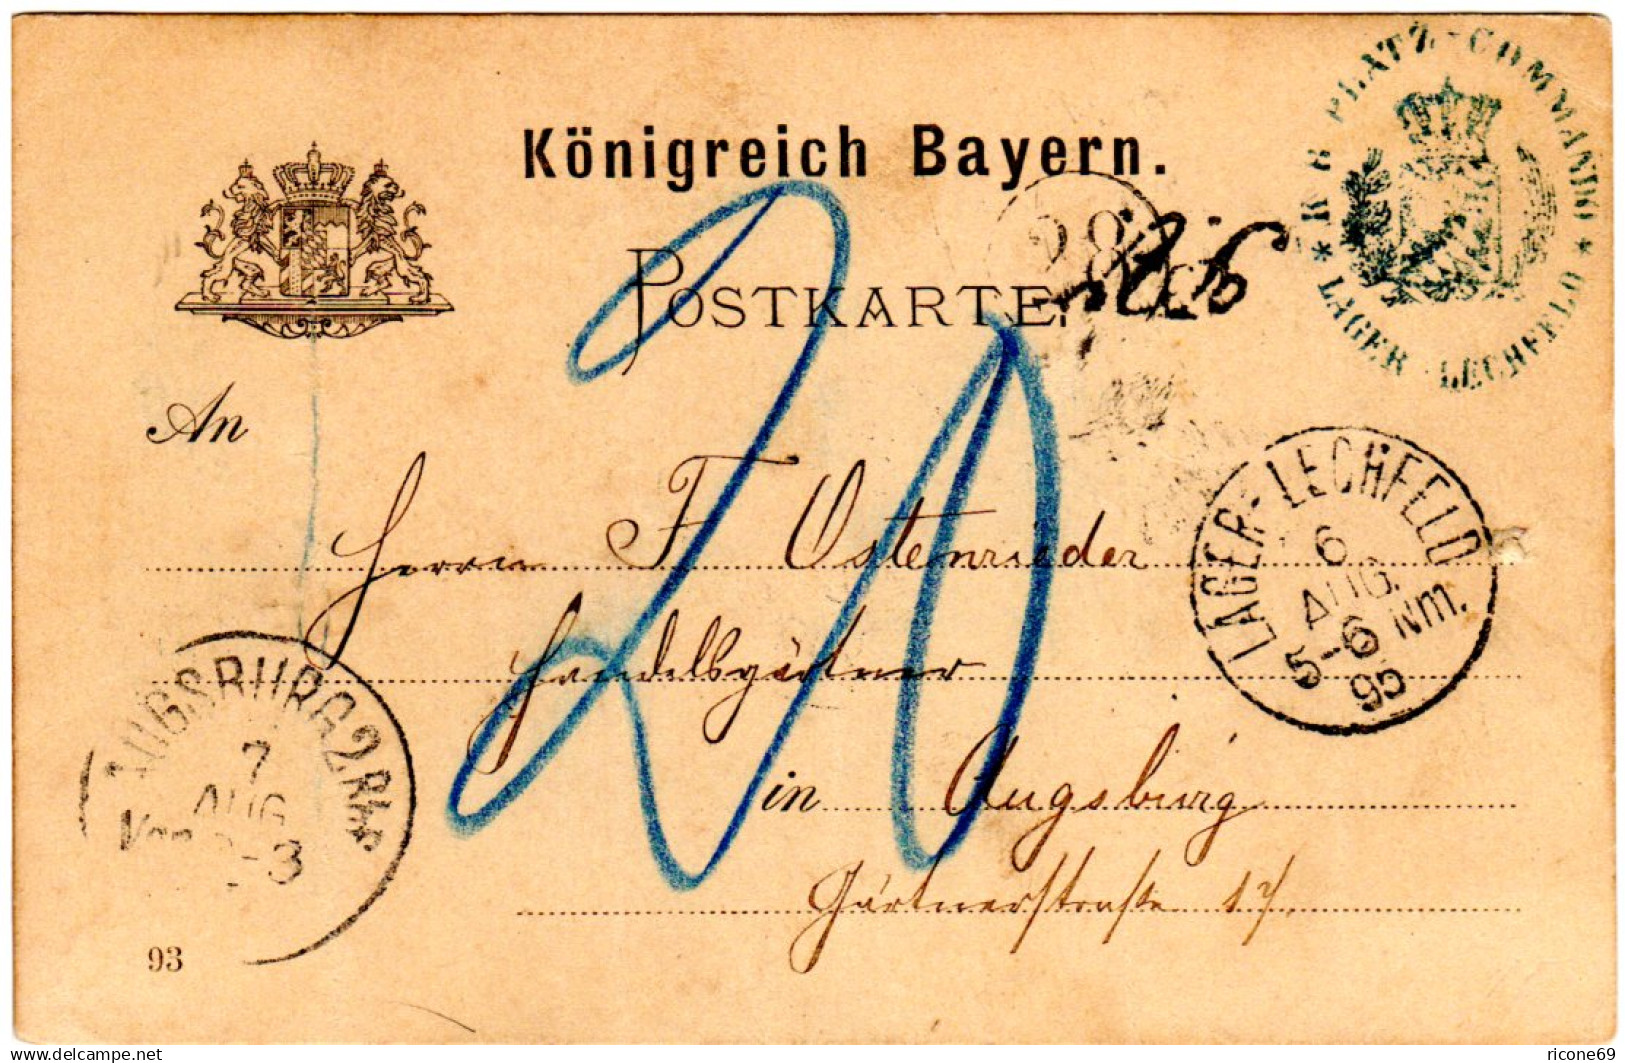 K B PLATZ-COMMANDO
* LAGER LECHFELD *
Königreich Bayern.
POSTKARTE.
20
An
Herrn F. Ostenrieder
Handelsgärtner
in Augsburg
Gärtnerstraße 17.
LAGER-LECHFELD
6
AUG.
5-6 Nm.
95
AUGSBURG 2
7
AUG
93
delcampe.net
ricone69